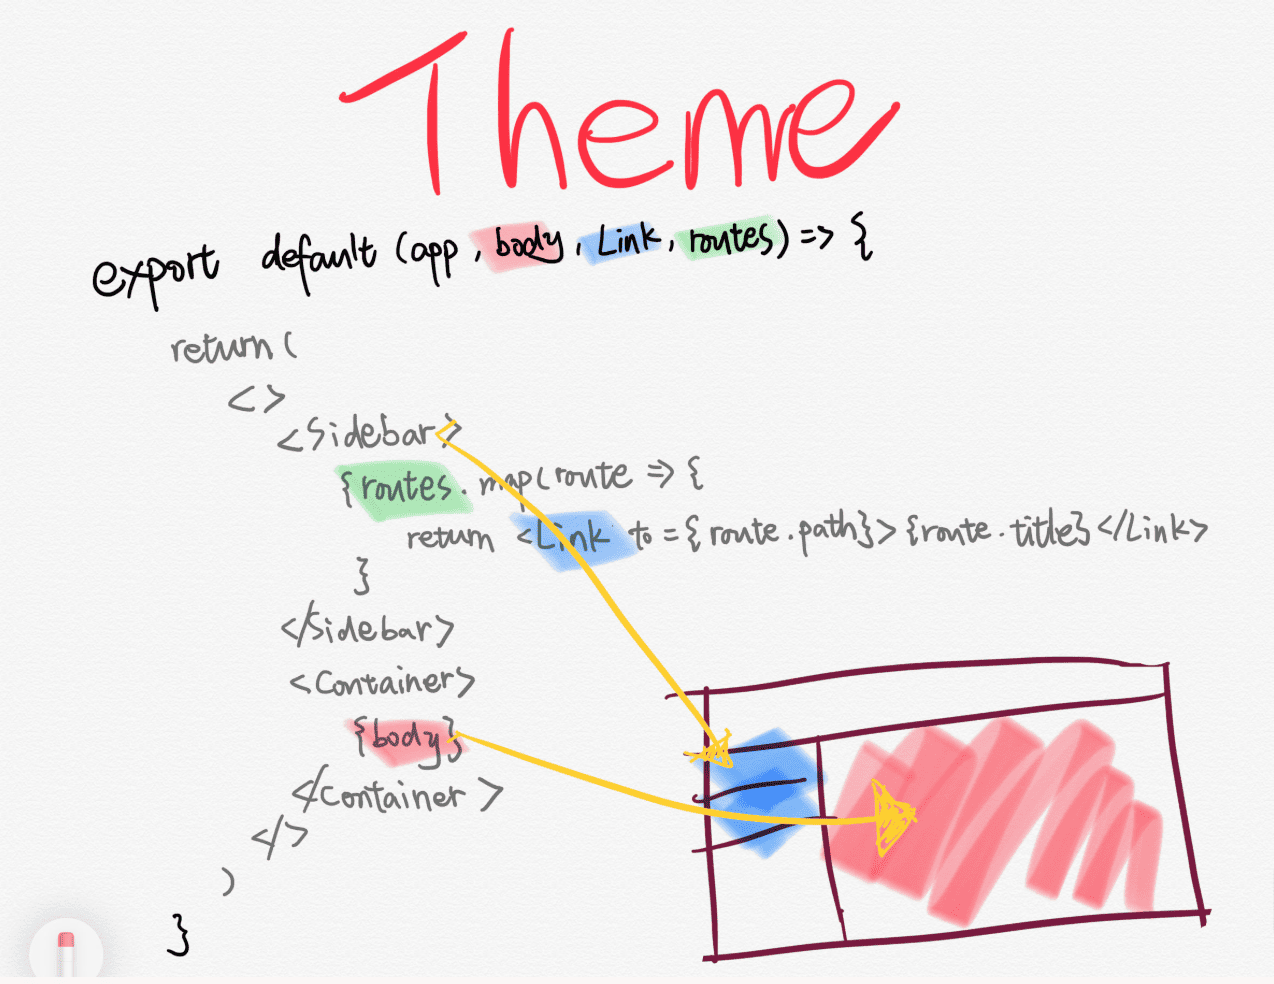 Theme
export default (app, body, Link, routes) => {
return (
<>
<Sidebar>
{routes.map(route => {
return <Link to={route.path}>{route.title}</Link>
}
</Sidebar>
<Container>
{body}
</Container>
</>
)
}